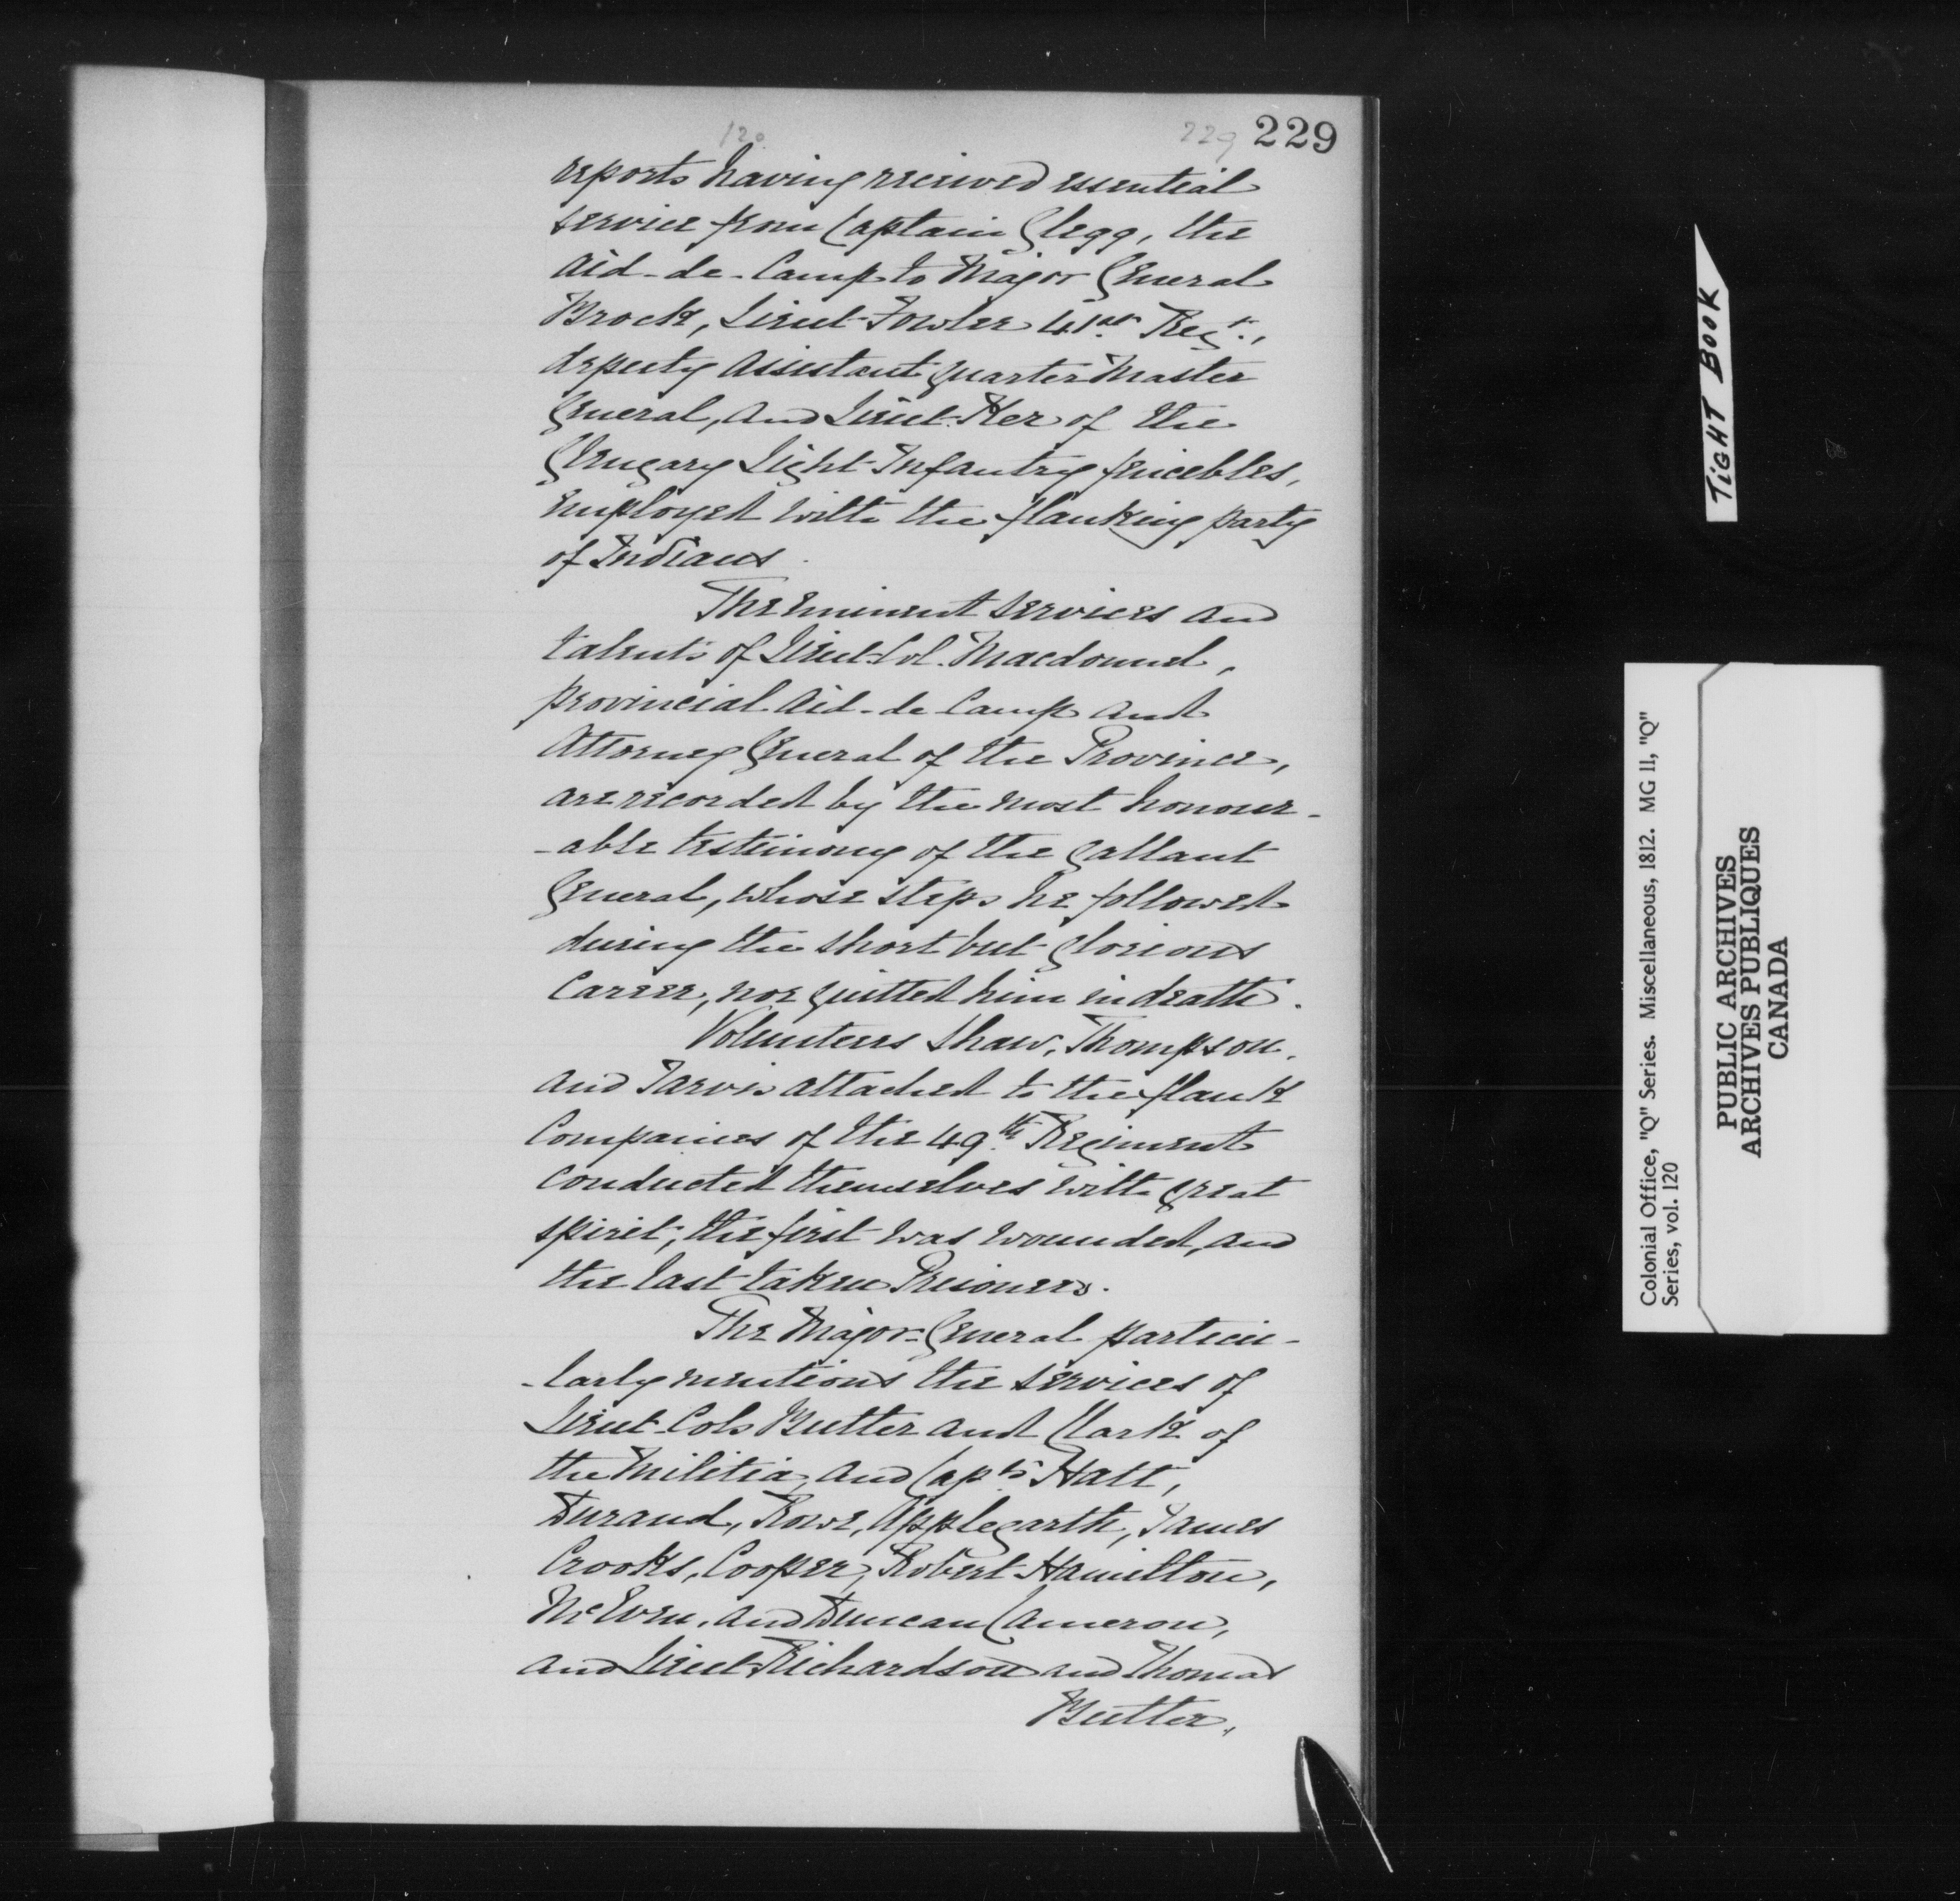 120 229 229
reports having received essential
service from Captain Glegg, the
Aid-de-Camp to Major General
Brock, Lieut Fowler 41st Regt.,
deputy Assistant Quarter Master
General, and Lieut. Ker of the
Glengary Light Infantry fencebles,
employed with the flanking party
of Indians.
The eminent services and
talents of Lieut-Col. Macdonnel,
provincial Aid-de-Camp and
Attorney General of the Province,
are recorded by the most honour-
-able testimony of the gallant
General, whose steps he followed
during the short but glorious
Career, nor quitted him in death.
Volunteers Shaw, Thompson,
and Jarvis attached to the flank
Companies of the 49th Regiment
conducted themselves with great
spirit; the first was wounded, and
the last taken Prisoners.
The Major-General particu-
-larly mentions the services of
Lieut-Cols Butler and Clark of
the Militia, and Capts Hatt,
Durand, Rowe, Applegarth, James
Crooks, Cooper, Robert Hamilton,
McEwen, and Duncan Cameron,
and Lieut Richardson and Thomas
Butler,
TIGHT BOOK
Colonial Office, "Q" Series. Miscellaneous, 1812. MG 11, "Q"
Series, vol. 120
PUBLIC ARCHIVES
ARCHIVES PUBLIQUES
CANADA